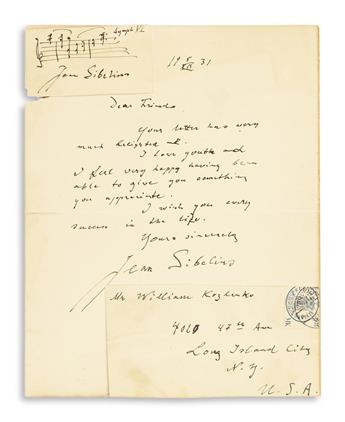 Symph VI
Jean Sibelius
19 5/XII 31
Dear Friends
Your letter has very
much delighted me.
I love youth and
I feel very happy having been
able to give you something
you appreciate.
I wish you every
success in the life.
Yours sincerely
Jean Sibelius
Mr William Kozlenko
4020 47th Ave
Long Island City
N.Y.
U.S.A.